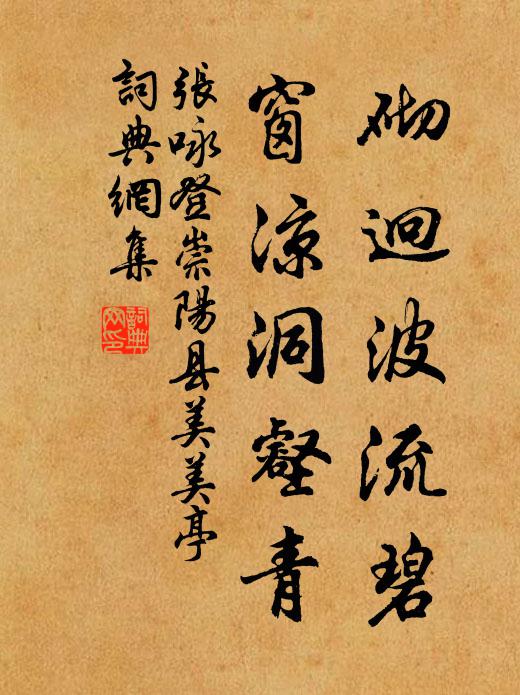 砌迴波流碧
窗涼洞壑青
張咏登崇陽县美美亭
詞典網集
詞典網印